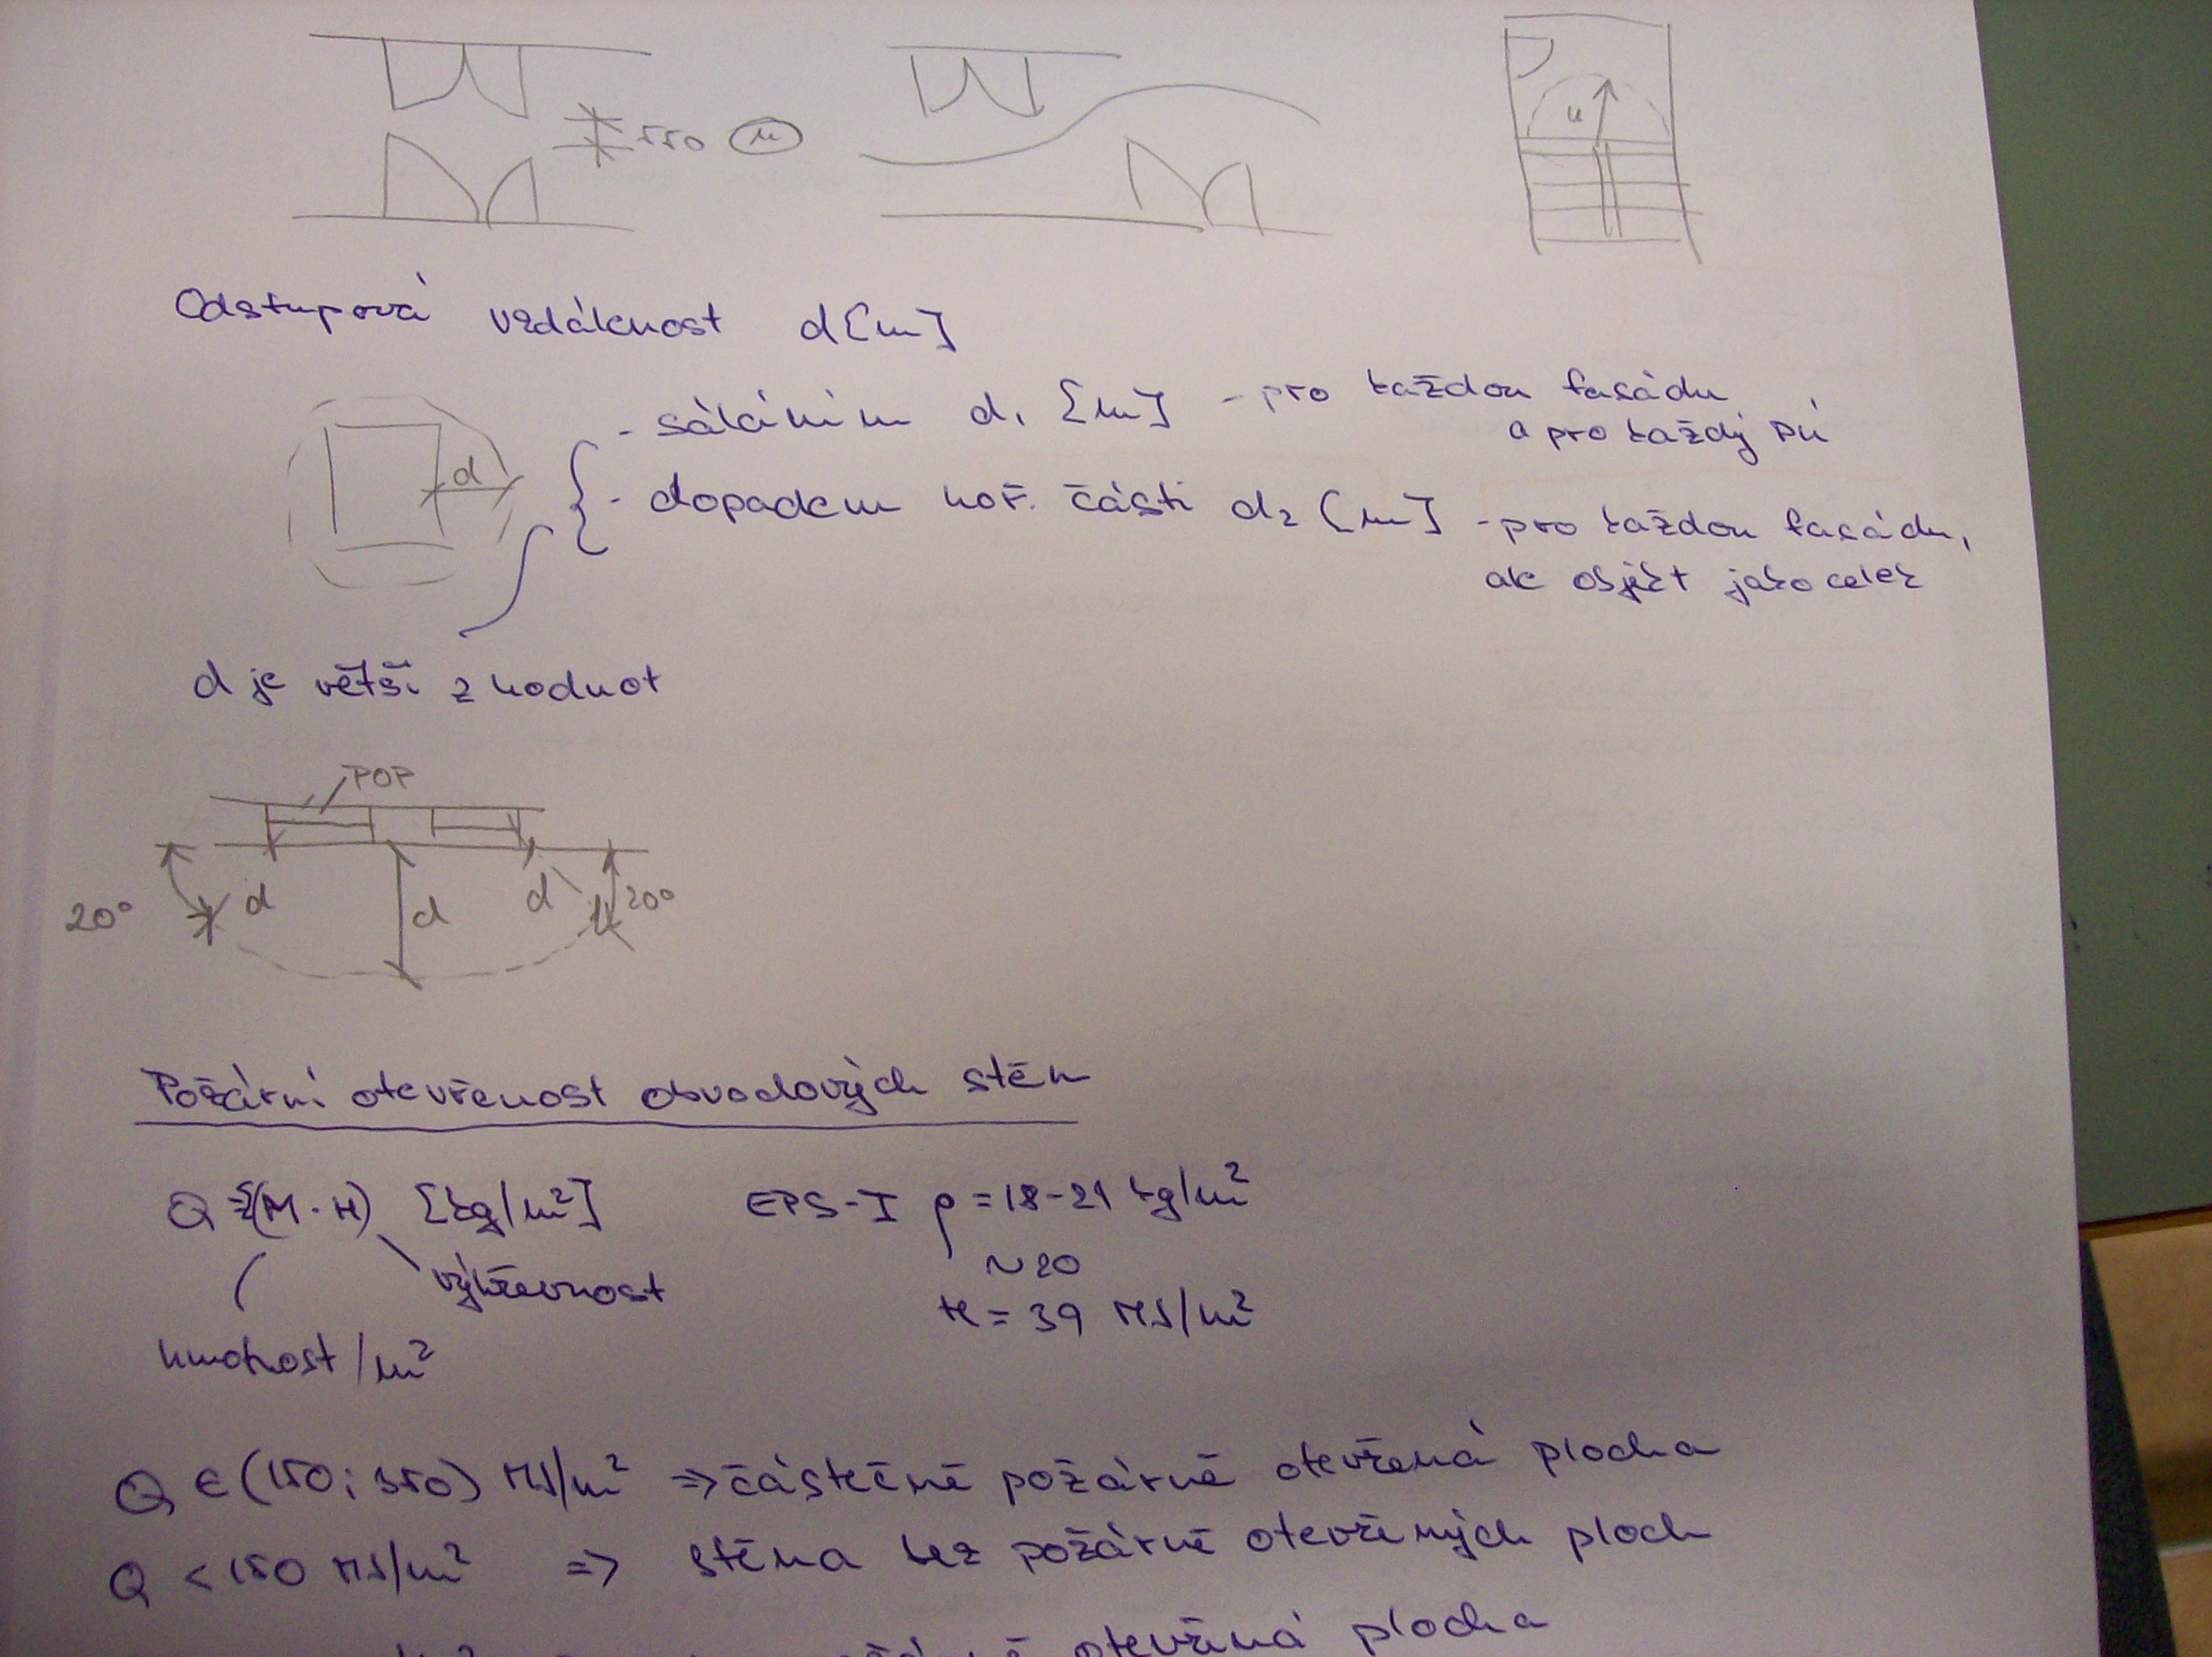 550 u
u
Odstupová vzdálenost d [m]
- sáláním d₁ [m] - pro každou fasádu
a pro každý PÚ
d
- dopadem hoř. části d₂ [m] - pro každou fasádu,
ale objekt jako celek
d je větší z hodnot
POP
20° d d d 20°
Požární otevřenost obvodových stěn
Q = Σ(M · H) [kg/m²] EPS-I ρ = 18-21 kg/m²
~20
výhřevnost
H = 39 MJ/m²
hmotnost/m²
Q ∈ (150; 350) MJ/m² => částečně požárně otevřená plocha
Q < 150 MJ/m² => stěna bez požárně otevřených ploch
otevřená plocha